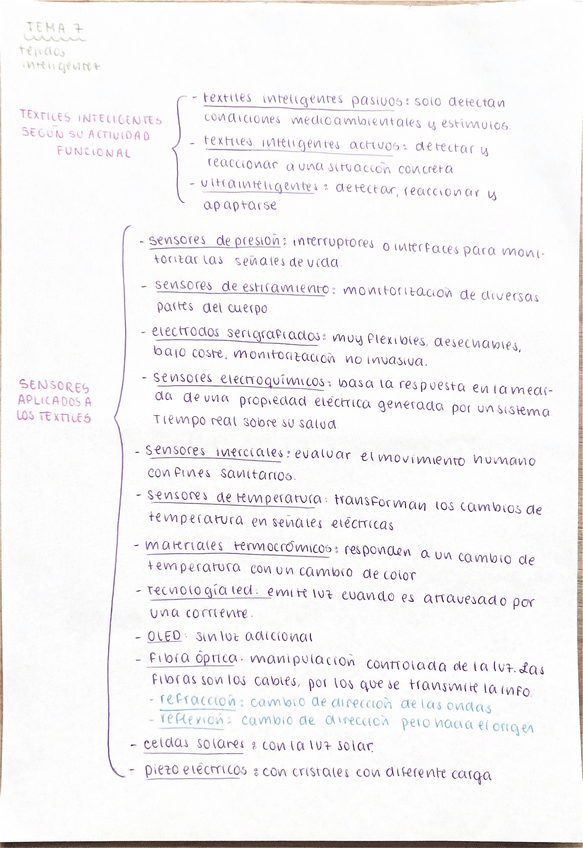 TEMA 7
tejidos
inteligentes
TEXTILES INTELIGENTES
SEGÚN SU ACTIVIDAD
FUNCIONAL
- textiles inteligentes pasivos: solo detectan
condiciones medioambientales y estímulos.
- textiles inteligentes activos: detectar y
reaccionar a una situación concreta
- ultrainteligentes: detectar, reaccionar y
apaptarse
SENSORES
APLICADOS A
LOS TEXTILES
- sensores de presión: interruptores o interfaces para moni-
torizar las señales de vida.
- sensores de estiramiento: monitorización de diversas
partes del cuerpo.
- electrodos serigrafiados: muy flexibles, desechables,
bajo coste, monitorización no invasiva.
- sensores electroquímicos: basa la respuesta en la medi-
da de una propiedad eléctrica generada por un sistema
Tiempo real sobre su salud
- sensores inerciales: evaluar el movimiento humano
con fines sanitarios.
- sensores de temperatura: transforman los cambios de
temperatura en señales eléctricas
- materiales termocrómicos: responden a un cambio de
temperatura con un cambio de color
- tecnología led: emite luz cuando es atravesado por
una corriente.
- OLED: sin luz adicional
- Fibra óptica: manipulación controlada de la luz. Las
fibras son los cables, por los que se transmite la info.
- refracción: cambio de dirección de las ondas
- reflexión: cambio de dirección pero hacia el origen
- celdas solares: con la luz solar.
- piezo eléctricos: con cristales con diferente carga